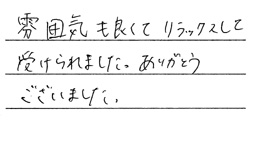 雰囲気も良くてリラックスして
受けられました。ありがとう
ございました。